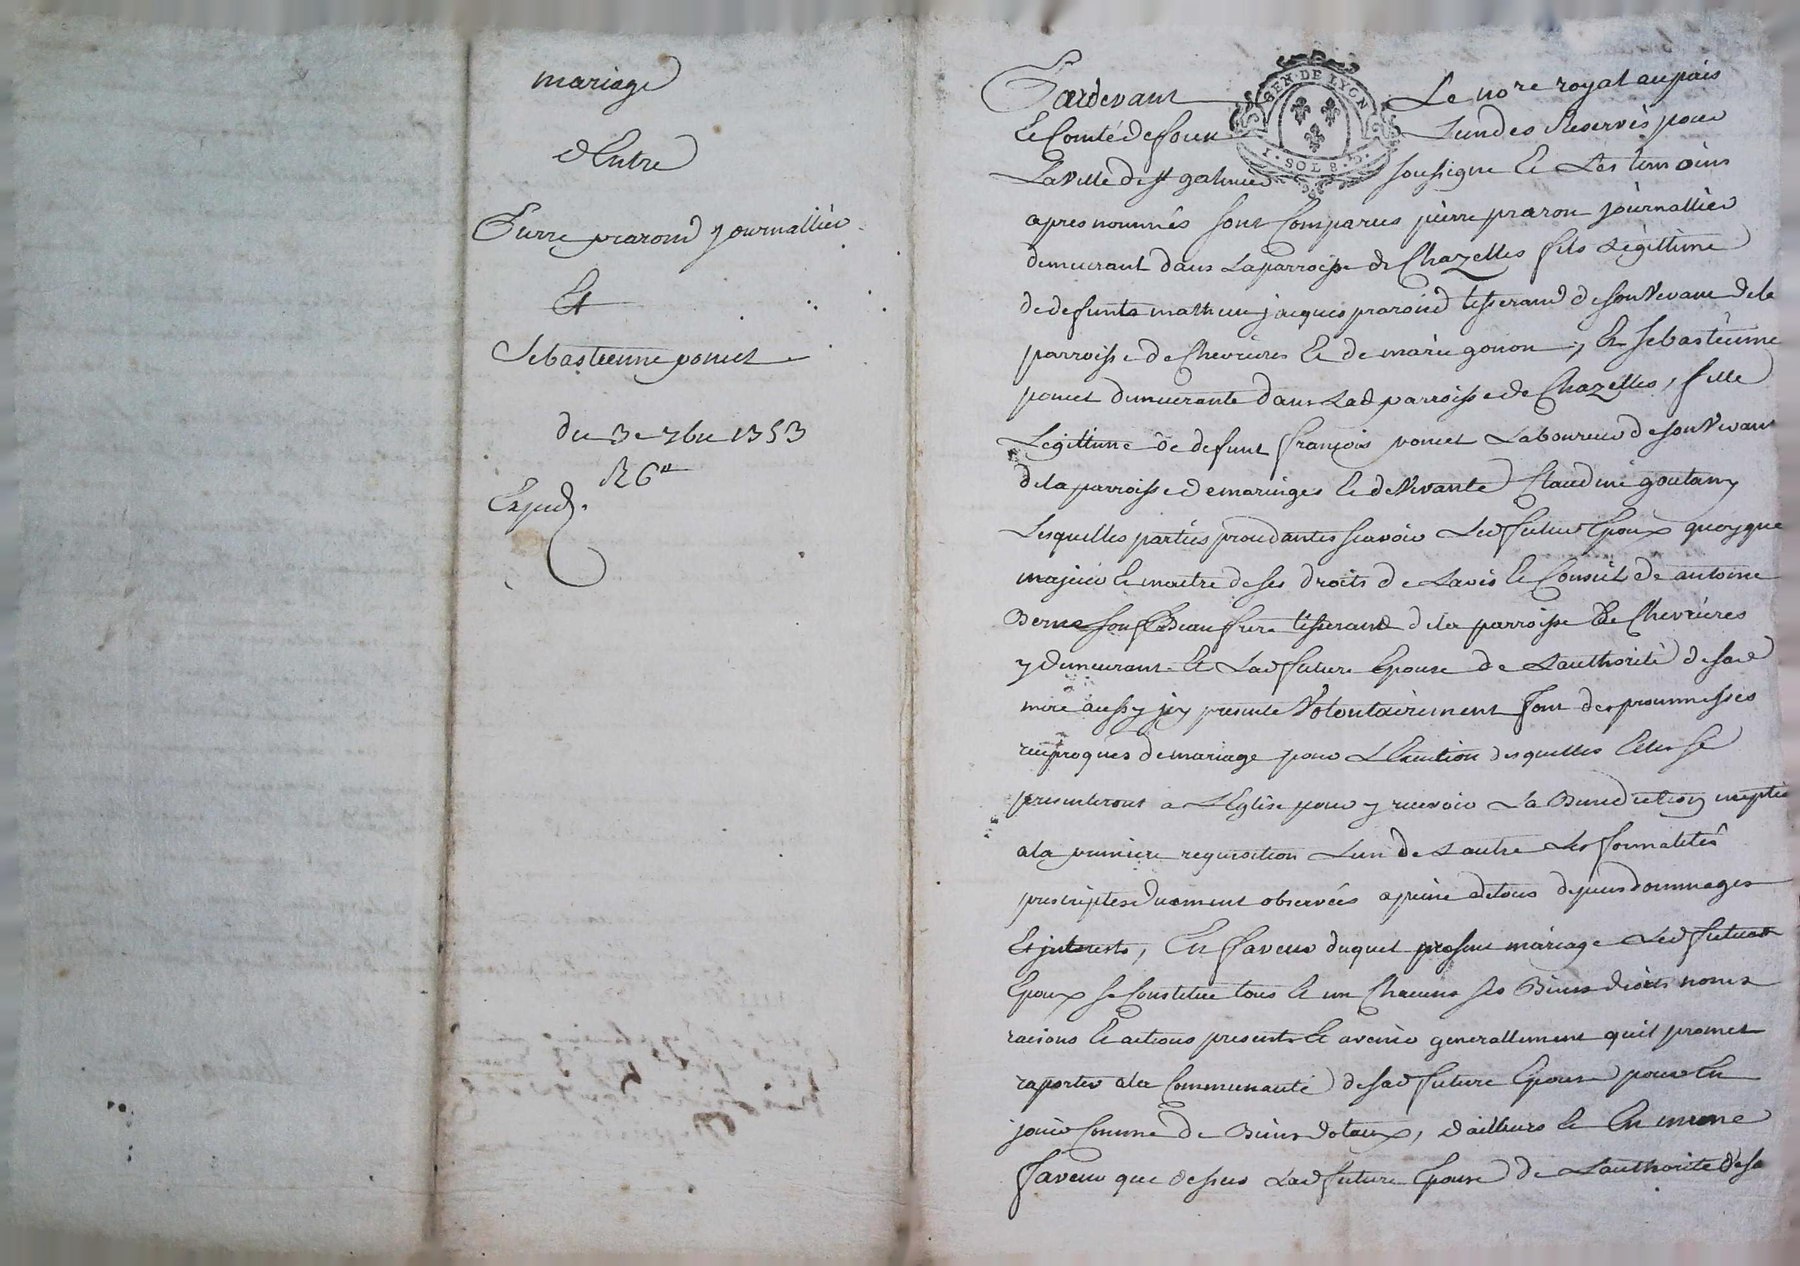 mariage
d'Entre
Pierre prarond journallier
Et
Sebastienne poncet
du 3e 7bre 1753
R 6tt
Expéd.
GEN. DE LYON
1. SOL 8. D.
Pardevant Le nore royal au païs
Et Comté de forez Lun des Reservés pour
La Ville de st galmier soussigné Et Les temoins
apres nommés sont Comparus pierre praron journallier
demeurant dans La parroisse de Chazelles fils Legittime
de defunts mathieu jacques prarond tisserand de son Vivant de la
parroisse de Chevrieres Et de marie gonon, Et Sebastienne
poncet demeurante dans Lad parroisse de Chazelles, fille
Legittime de defunt françois poncet Laboureur de son Vivant
de la parroisse de maringes Et de Vivante Claudine goutany
Lesquelles parties proceddantes scavoir Led futur Epoux quoyque
majeur Et maitre de ses droits de Lavis Et Conseil de antoine
Berne son Beaufrere tisserand de la parroisse de Chevrieres
y demeurant Et Lad future Epouse de Lauthorité de sad
mere aussy icy presente Volontairement font des prommesses
reciproques de mariage pour L'Execution desquelles Elles se
presenteront a L'Eglise pour y recevoir La Benediction nuptial
a la premiere requisition Lun de Lautre Les formalités
prescriptes duement observées a peine de tous depens dommages
Et interests, En faveur duquel present mariage Led futur
Epoux se Constitue tous Et un Chacuns ses Biens droits noms
raisons Et actions presents Et avenir generallement quil promet
raporter a la Communauté de sad future Epouse pour En
jouir Comme de Biens dotaux, d'ailleurs Et En meme
faveur que dessus Lad future Epouse de Lauthorité de sa